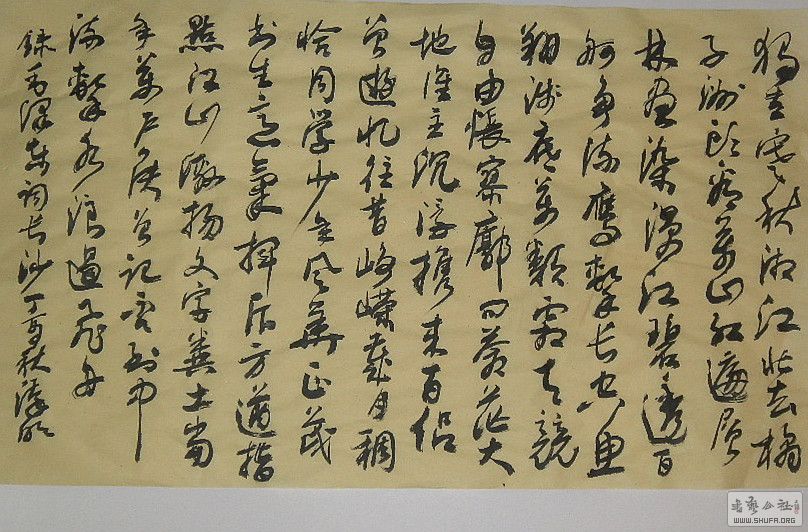 獨立寒秋湘江北去橘
子洲头看萬山红遍层
林尽染漫江碧透百
舸争流鹰擊长空鱼
翔浅底萬類霜天競
自由悵寥廓问蒼茫大
地谁主沉浮携来百侣
曾遊忆往昔峥嵘歲月稠
恰同學少年风華正茂
书生意氣挥斥方遒指
點江山激扬文字粪土当
年萬户侯曾记否到中
流擊水浪遏飞舟
錄毛泽东词长沙丁亥秋
书艺公社
WWW.SHUFA.ORG